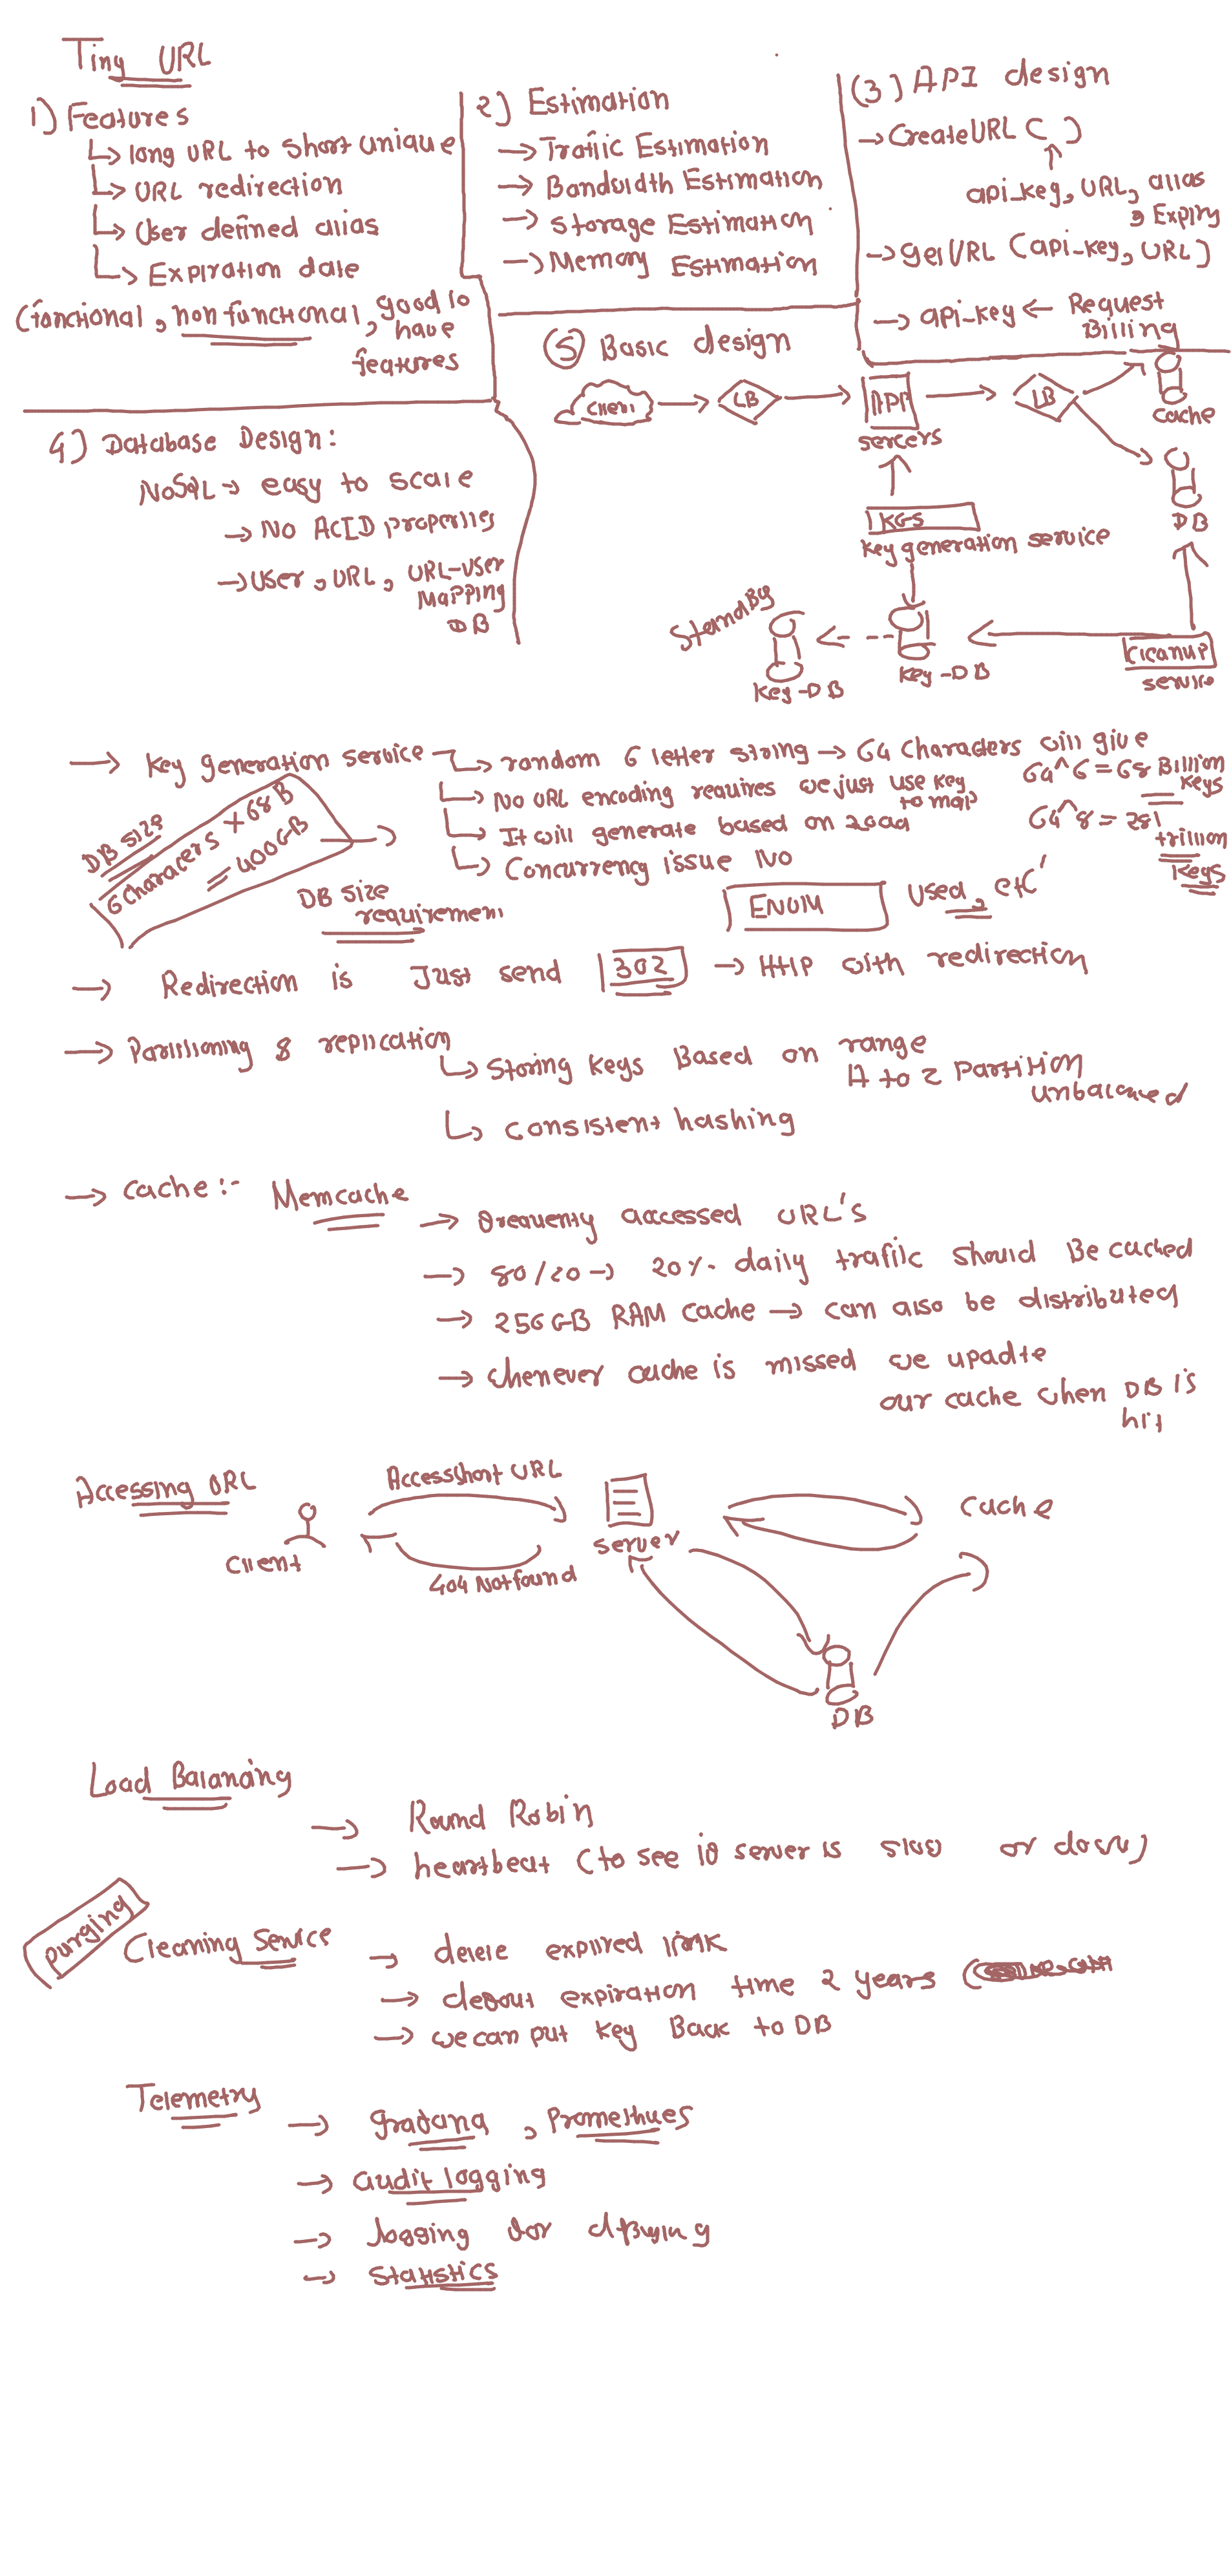 Tiny URL
1) Features
long URL to short unique
URL redirection
User defined alias
Expiration date
(functional, non functional, good to
have
features
2) Estimation
Traffic Estimation
Bandwidth Estimation
Storage Estimation
Memory Estimation
(3) API design
CreateURL ( )
api_key, URL, alias
, Expiry
getURL (api_key, URL)
api_key ← Request
Billing
4) Database Design:
NoSQL → easy to scale
→ No ACID properties
→ User, URL, URL-User
Mapping
DB
5 Basic design
Client
LB
APP
servers
LB
Cache
DB
KGS
Key generation service
Standby
Key-DB
Key-DB
Cleanup
service
→ Key generation service
random 6 letter string → 64 Characters will give
64^6 = 68 Billion
Keys
No URL encoding requires we just use key
to map
64^8 = 281
trillion
Keys
It will generate based on load
Concurrency issue No
DB size
6 Characers x 68 B
= 400GB
DB size
requirement
ENUM
used, etc'
→ Redirection is Just send 302 → HTTP with redirection
→ Partitioning & replication
Storing Keys Based on range
A to Z Partition
unbalanced
consistent hashing
→ Cache :- Memcache
→ frequenty aaccessed URL's
→ 80/20 → 20% daily traffic should Be cached
→ 256GB RAM cache → can also be distributed
→ whenever cache is missed we upadte
our cache when DB is
hit
Accessing URL
Client
Access short URL
404 Not found
server
Cache
DB
Load Balancing
→ Round Robin
→ heartbeat (to see if server is slow or down)
Purging
Cleaning Service
→ delete expired link
→ defout expiration time 2 years (
→ we can put key Back to DB
Telemetry
→ grafana, Promethues
→ audit logging
→ logging for
→ Statistics